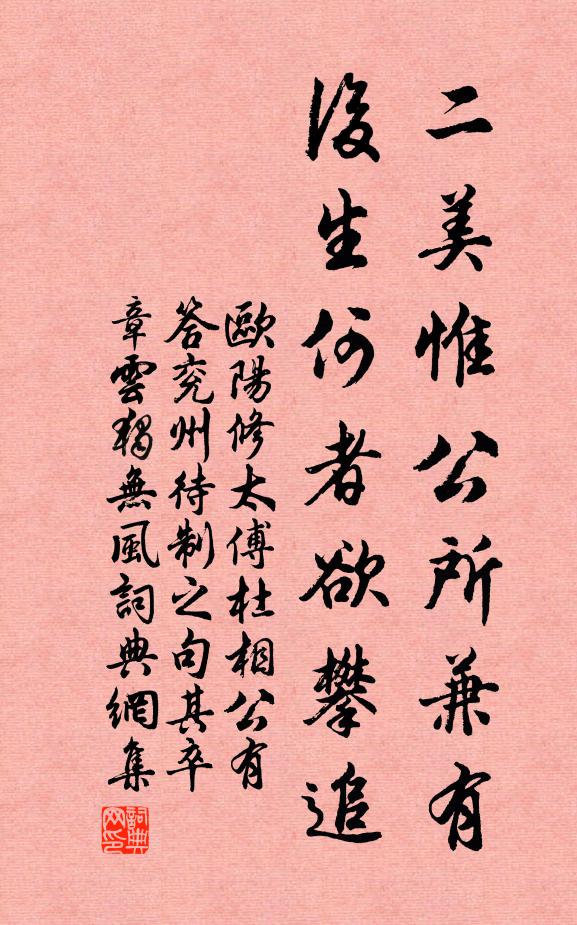 二美惟公所兼有
後生何者欲攀追
歐陽修太傅杜相公有
答兖州待制之句其卒
章雲獨無風詞典網集
詞典网印